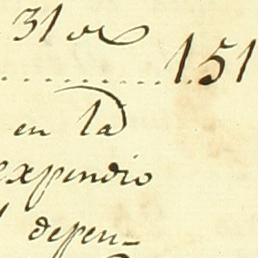 31 or
1.51
en la
expendio
depen-